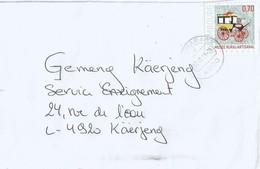 0,70
MUSEE RURAL ET ARTISANAL
Gemeng Käerjeng
Service Enseignement
24, rue de l'eau
L-4920 Käerjeng